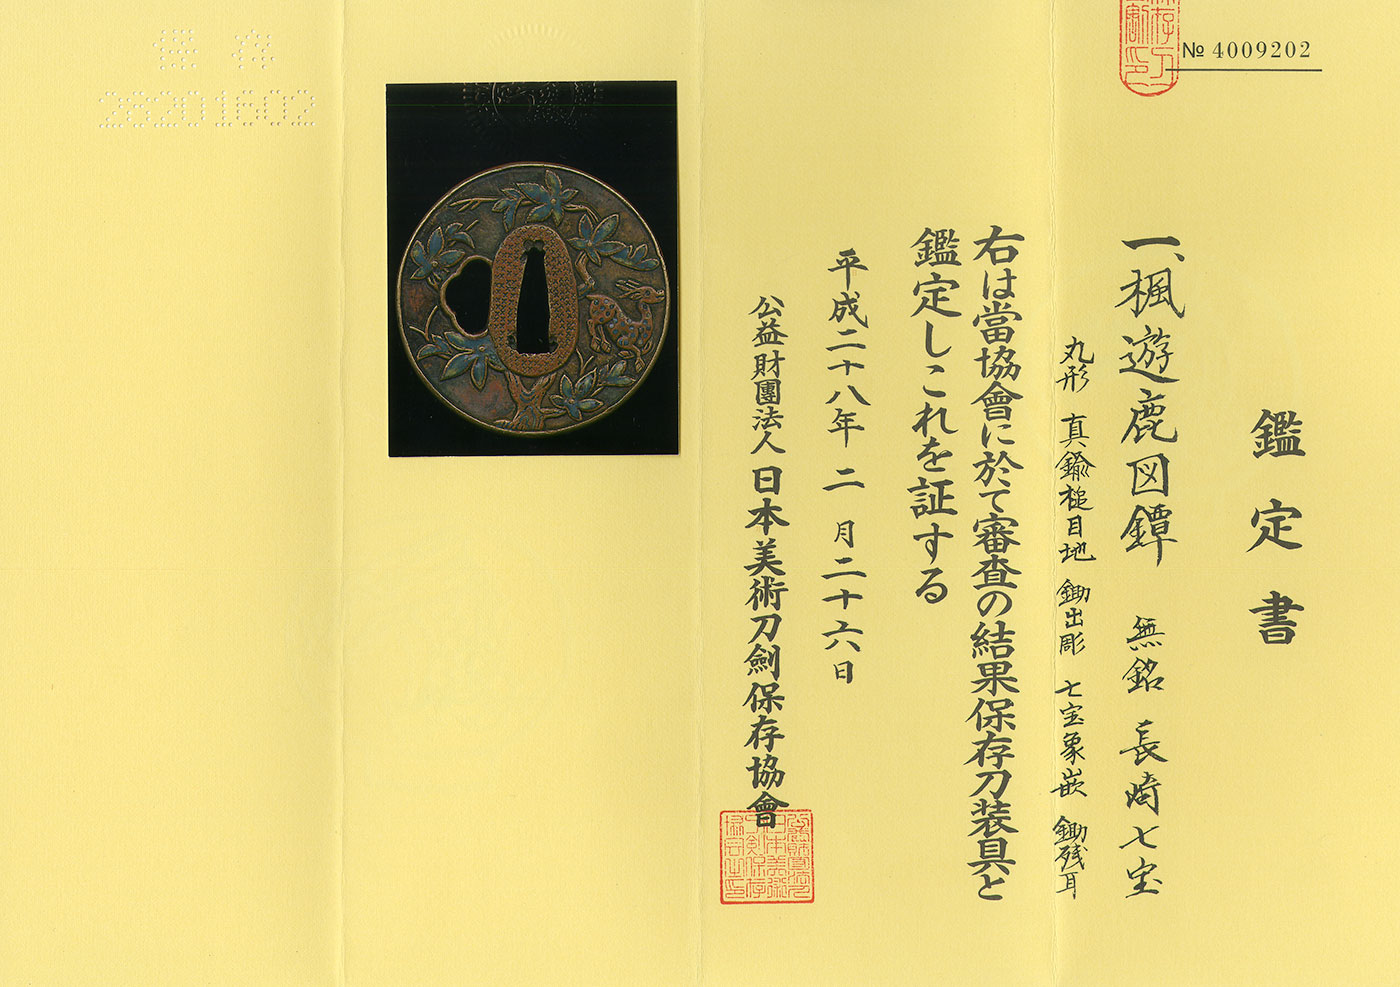 № 4009202
鑑定書
一、楓遊鹿図鐔 無銘 長崎七宝
丸形 真鍮槌目地 鋤出彫 七宝象嵌 鋤残耳
右は當協會に於て審査の結果保存刀装具と
鑑定しこれを証する
平成二十八年 二 月二十六日
公益財團法人 日本美術刀劍保存協會
保存
28201602